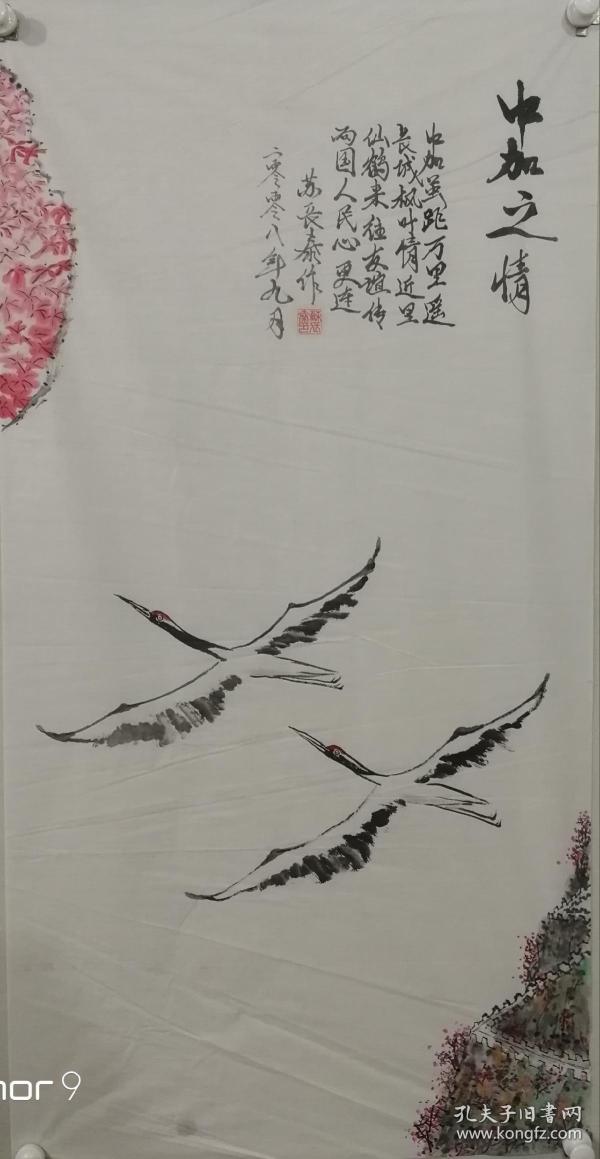 中加之情
中加虽距万里遥
长城枫叶情近里
仙鹤来往友谊传
两国人民心更连
苏长泰作
二零零八年九月
nor 9
孔夫子旧书网
www.kongfz.com